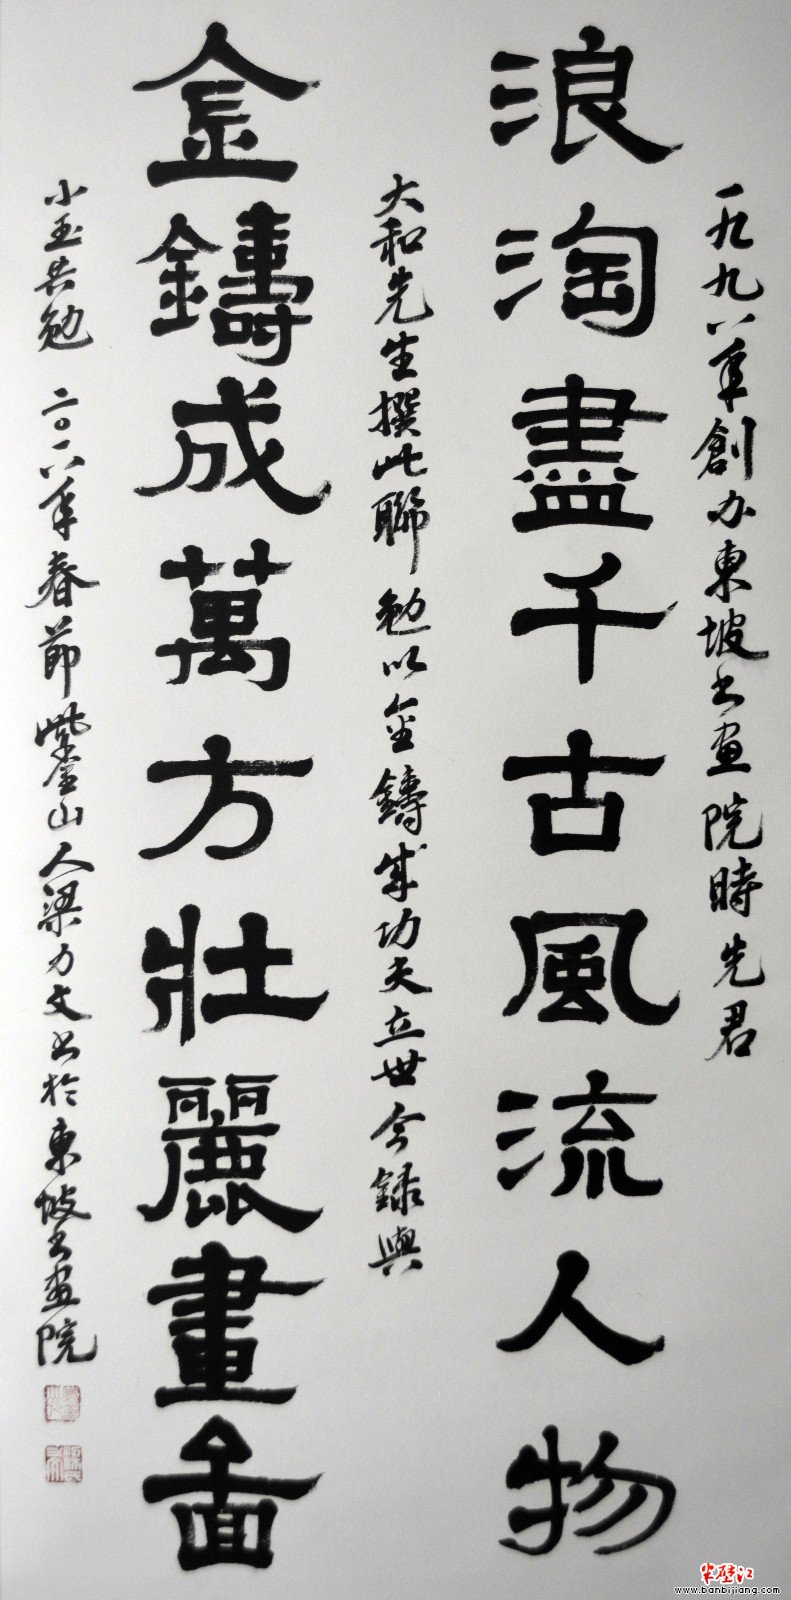 一九九八年創办東坡书画院時先君
浪淘盡千古風流人物
大和先生撰此聯勉以金鑄成功夫立世今録與
金鑄成萬方壯麗畫圖
小玉共勉 二〇一八年春節紫金山人梁力文书於東坡书画院
半壁江
www.banbijiang.com